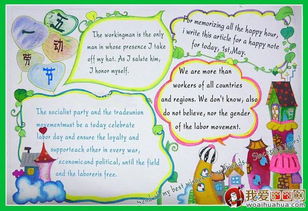 五一
劳动节
The workingman is the only
man in whose presence I take
off my hat. As I salute him,
I honor myself.
For memorizing all the happy hour,
i write this article for a happy note
for today, 1st,May.
We are more than
workers of all countries
and regions. We don't know, also
do not believe, nor the gender
of the labor movement.
The socialist party and the tradeunion
movementmust be a today celebrate
labor day and ensure the loyalty and
supporteach other in every war,
economicand political, until the field
and the laboreris free.
my best
我爱画画网
woaihuahua.com